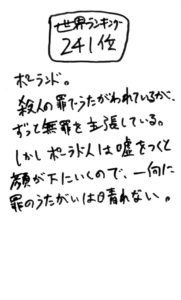 世界ランキング
241位
ポーランド。
殺人の罪でうたがわれているが、
ずっと無罪を主張している。
しかしポーランド人は嘘をつくと
顔が下にいくので、一向に
罪のうたがいは晴れない。